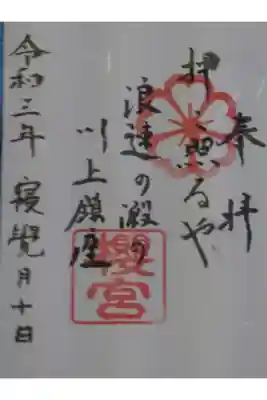 奉拝
押照るや
浪速の澱の
川上鎮座
櫻宮
令和三年 寝覺月十日